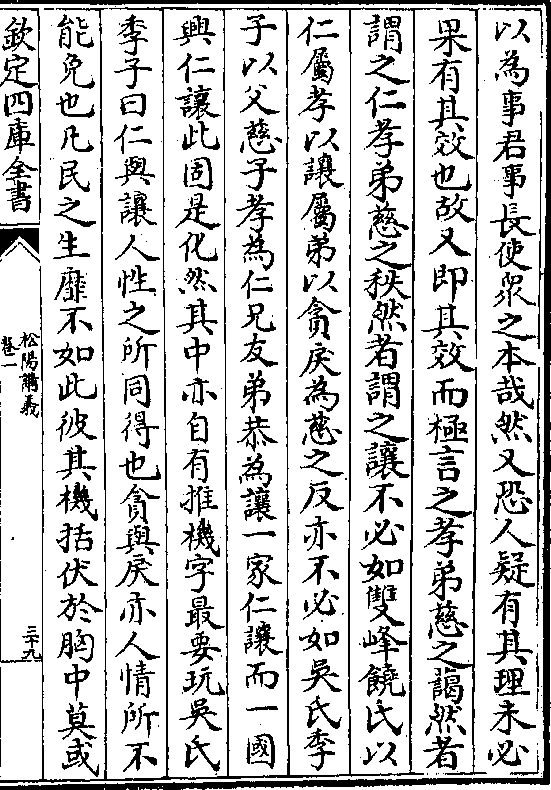 以為事君事長使衆之本哉然又恐人疑有其理未必
果有其效也故又即其效而極言之孝弟慈之藹然者
謂之仁孝弟慈之秩然者謂之讓不必如雙峰饒氏以
仁屬孝以讓屬弟以貪戾為慈之反亦不必如吳氏季
子以父慈子孝為仁兄友弟恭為讓一家仁讓而一國
興仁讓此固是化然其中亦自有推機字最要玩吳氏
季子曰仁與讓人性之所同得也貪與戾亦人情所不
能免也凡民之生靡不如此彼其機括伏於胸中莫或
欽定四庫全書
松陽講義
卷一
三十九